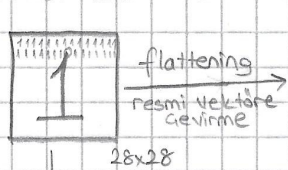 1
flattening
resmi vektöre
çevirme
28x28